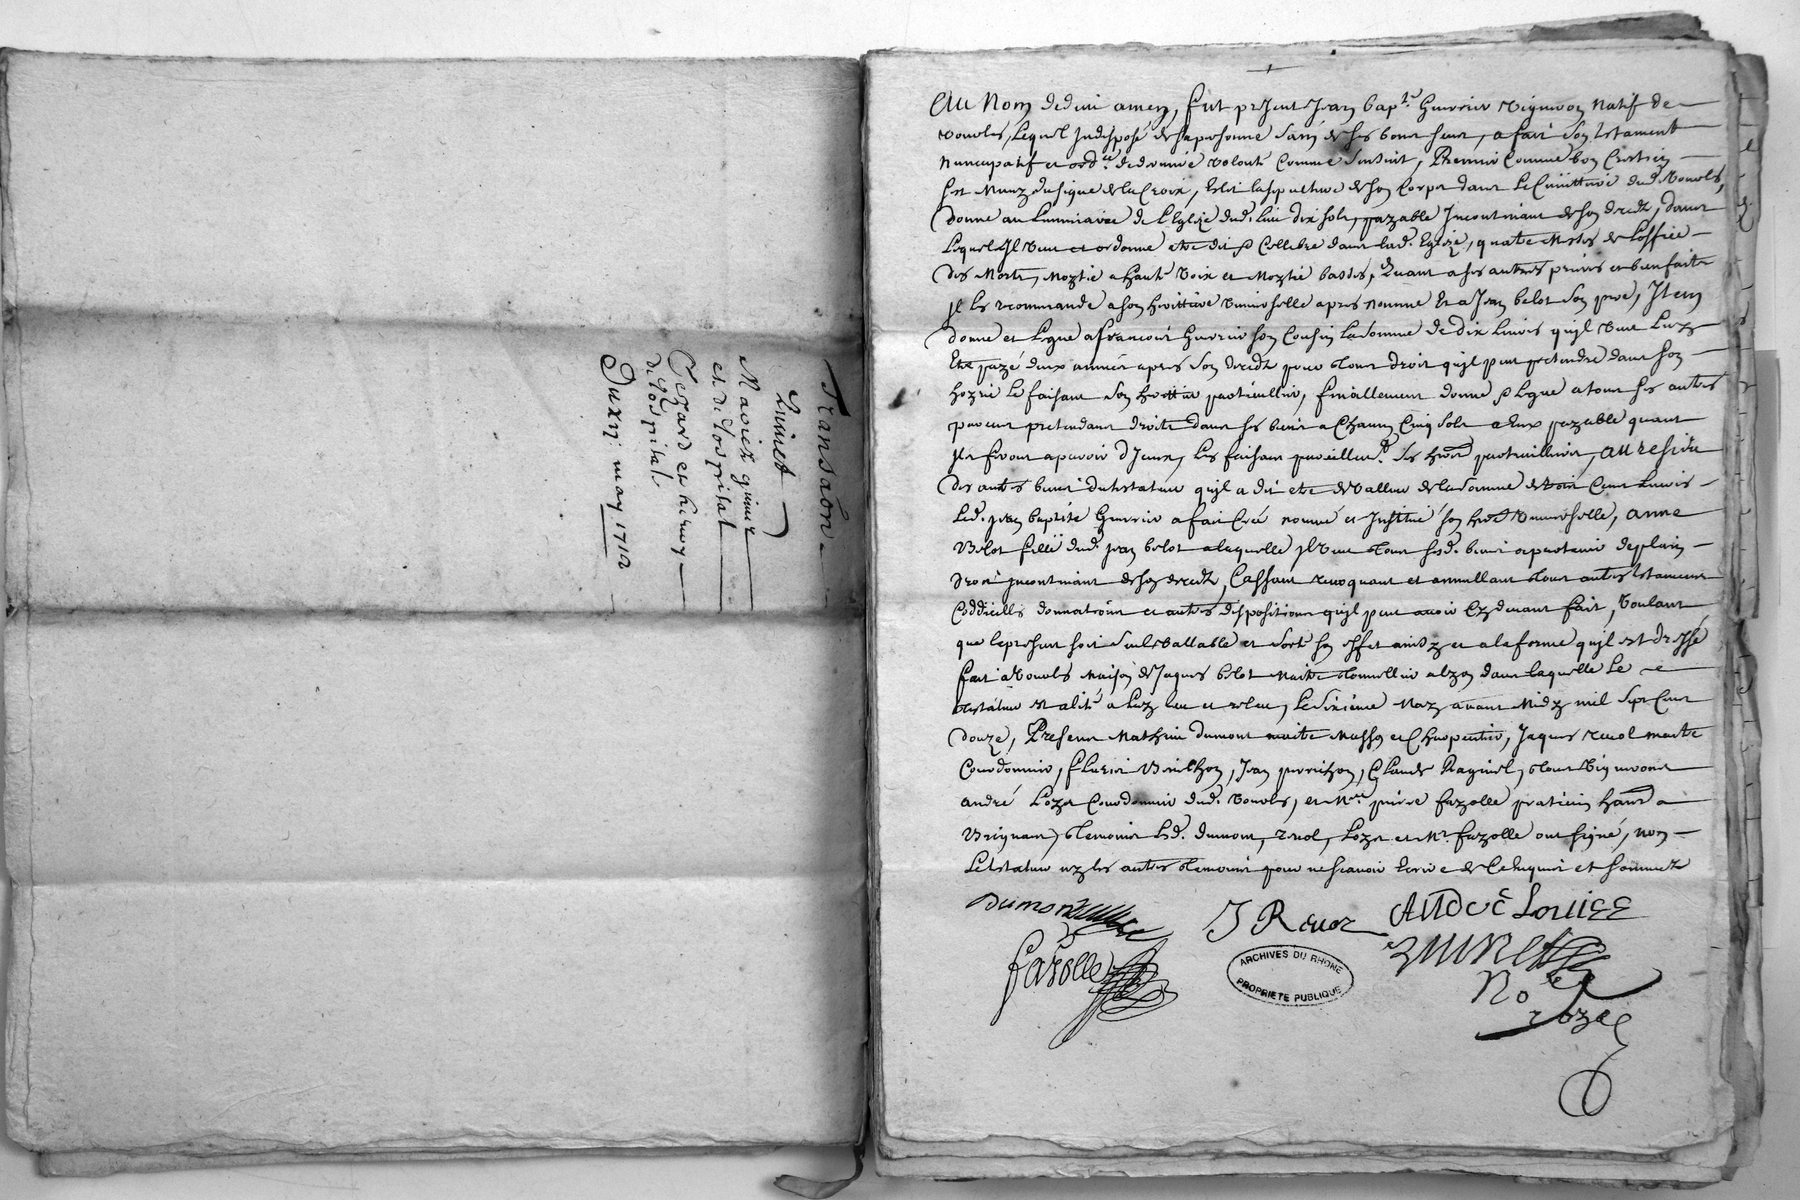 Transaon
Quinet
Mariez gimez
et de Lospital
Tezard et heruy
de Lospital
Du xij may 1712
Au Nom dedieu amen, fut present Jean bapte Guerrier vigneron natif de
vourles, Lequel Indisposé desapersonne sain de ses bons sens, a fait son testament
nuncupatif et ordce dederniere volonté Comme sensuit, Premier Comme bon Crestien
sest Muny dusigne delaCroix, Eslit lasepulture deson Corps dans Le Cimittiere dud Vourles,
donne au Luminaire de LEglize dud. Lieu dix sols, payable Incontinant deson decedz, dans
Lequel Il veut et ordonne etre dit & Cellebré dans lad. Eglize, quatre Messes de Loffice
des Morts, Moytié a haute voix et Moytié basses, Quant a ses autres prieres et bienfaits
Il les recommande a son herittiere universelle apres nommée Et a Jean belot son pere, Item
donne et Legue afrancois Guerrier son Cousin La somme de dix Livres quil veut Luy
Etre payé deux années apres son decedz pour tous droit quil peut pretendre dans son
hoyrie Le faisant son herittier particullier, finallement donne & Legue a tous ses autres
pouvant pretendans droits dans ses biens a Chacun Cinq sols a Eux payable quant
Ils feront aparoir dIceux, Les faisant pareillemt. ses hers particulliers, au residu
des autres biens dutestateur quil a dit etre devalleur de lasomme de trois Cens Livres
Led. jean baptiste Guerrier a fait Créé nommé et Institué son here universelle, anne
Belot fille dud. jean belot a laquelle Il veut tous sesd. biens apartenir deplain
droit incontinant deson decedz, Cassant revoquant et annullant tous autres testaments
Coddicills donnations et autres dispositions quil peut avoir Cy devant fait, voulant
que lepresent soit seul vallable et sorte son effet ainsy et a la forme quil est dressé
fait a vourles maison de Jaques belot Maitre tonnellier alyon dans laquelle Le
testateur est alité a Luy leu et releu, Le sixieme May avant Midy mil sept Cens
douze, Presens Mathieu dumont maitre Masson et Charpentier, Jaques revol maitre
Courdonnier, fleurie Verilhon, Jean perrichon, Claude Raginel, tous vignerons
andré Loyse Courdonnier dud. vourles, et Mre pierre fayolle praticien hant a
Brignais, temoins Lesd. dumont, revol, Loyse et Mr. fayolle ont signé, non
Letestateur ny les autres temoins pour nescavoir Ecrire de Cé Enquis et sommez
Dumont
J Revoz
André Louise
fayolle
Quinet
Nore
royal
ARCHIVES DU RHONE
PROPRIETE PUBLIQUE